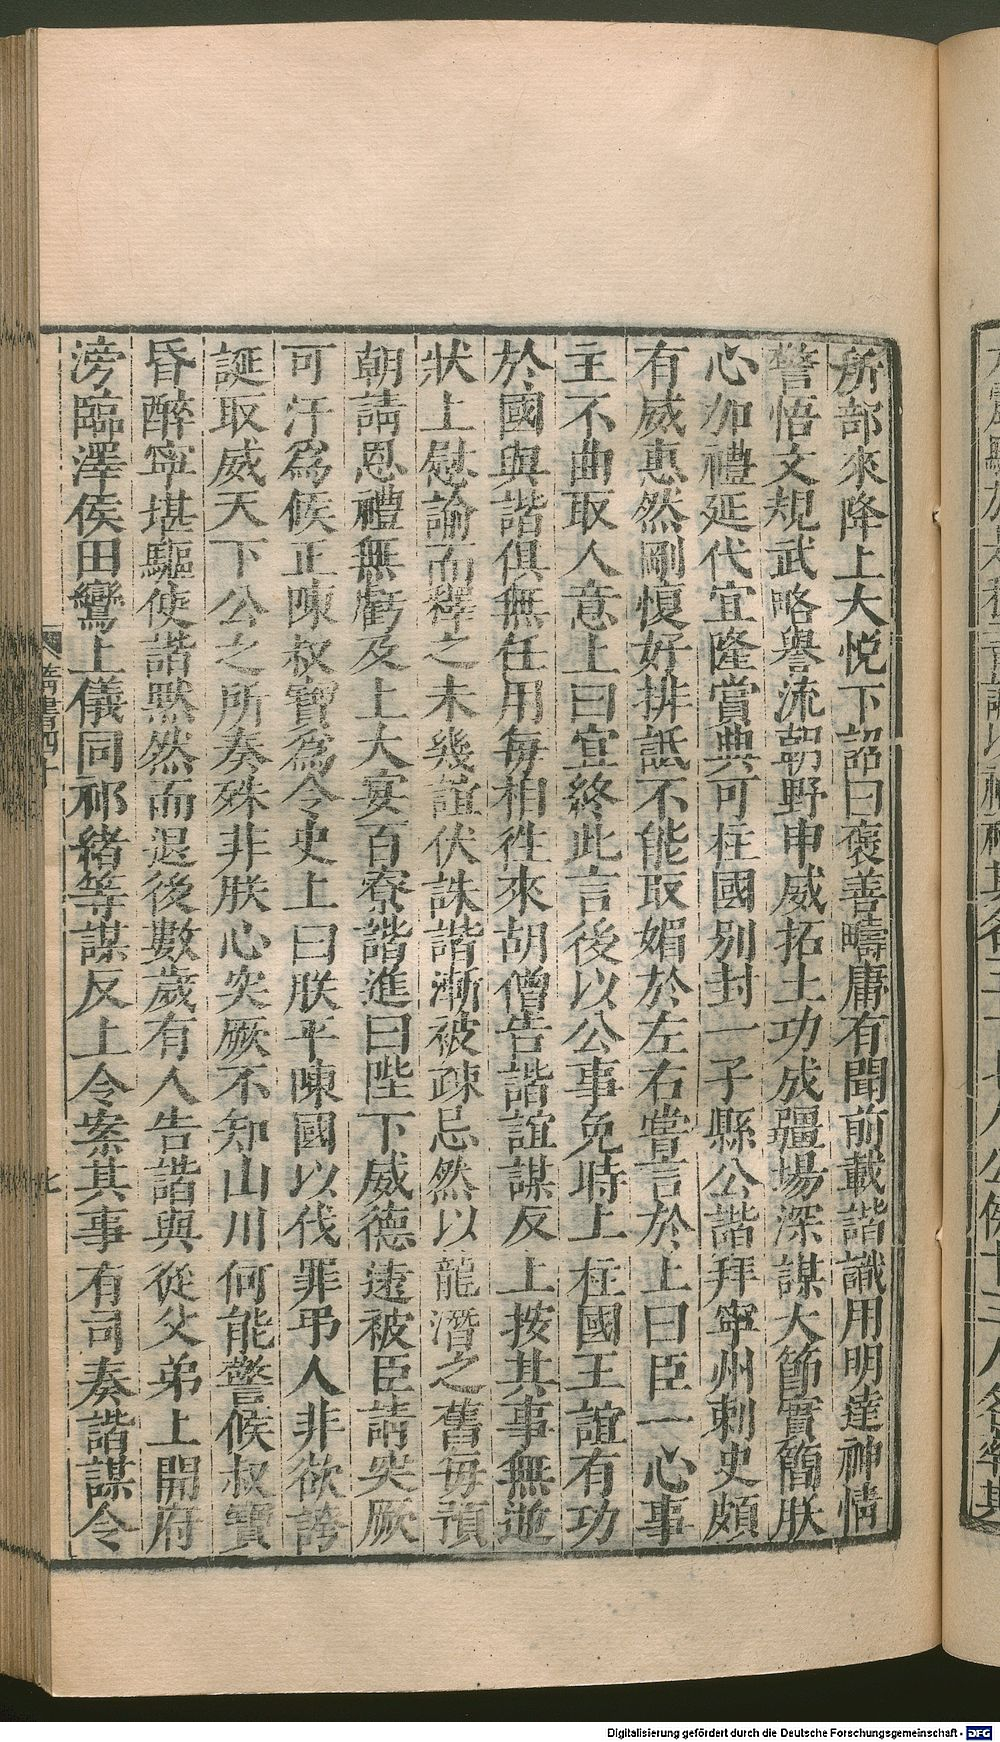 所部來降上大悅下詔曰褒善疇庸有聞前載諧識用明達神情
警悟文規武略譽流朝野申威拓土功成疆場深謀大節實簡朕
心加禮延代宜隆賞典可柱國別封一子縣公諧拜寧州刺史頗
有威惠然剛愎好排詆不能取媚於左右嘗言於上曰臣一心事
主不曲取人意上曰宜終此言後以公事免時上柱國王誼有功
於國與諧俱無任用每相徃來胡僧告諧誼謀反上按其事無逆
狀上慰諭而釋之未幾誼伏誅諧漸被疎忌然以龍潛之舊每預
朝請恩禮無虧及上大宴百寮諧進曰陛下威德遠被臣請突厥
可汗爲候正陳叔寶爲令史上曰朕平陳國以伐罪弔人非欲誇
誕取威天下公之所奏殊非朕心突厥不知山川何能警候叔寶
昏醉寧堪驅使諧默然而退後數歲有人告諧與從父弟上開府
滂臨澤侯田鸞上儀同祁緒等謀反上令案其事有司奏諧謀令
隋書四十
Digitalisierung gefördert durch die Deutsche Forschungsgemeinschaft - DFG